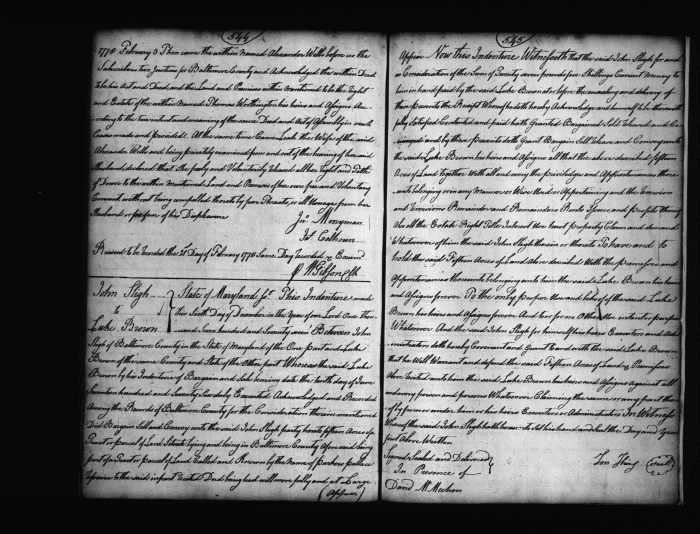 544
1778 February 3 Then came the within Named Alexander Wells before us the
Subscribers two Justices for Baltimore County and Acknowledged the within Deed
to be his Act and Deed, and the Land and Premises within Mentioned to be the Right
and Estate of the within Named Thomas Worthington his heirs and Assigns Acc
ording to the true intent and meaning of the same Deed and Act of Assembly in such
Case made and provided. At the same time Came Leah the Wife of the said
Alexander Wells and being privately examined from and out of the hearing of her said
Husband, declared that She freely and Voluntarily released all her Right and Title
of Dower to the within Mentioned Land and Premises of her own free and Voluntary
Consent without being compelled thereto by fear Threats, or ill Usage from her
Husband or for fear of his Displeasure
Jn. Merryman
Js. Calhoun
Received to be recorded the 3d Day of February 1778 Same Day Recorded & Exam'd
Wm Gibson Clk
John Sligh
to
Luke Brown
State of Maryland Sct. This Indenture made
the Sixth Day of December in the Year of our Lord One Thou
sand Seven hundred and Seventy seven Between John
Sligh of Baltimore County in the State of Maryland of the One part and Luke
Brown of the same County and State of the Other part Whereas the said Luke
Brown by his Indenture of Bargain and Sale bearing date the tenth day of June
Seventeen hundred and Seventy Executed Acknowledged and Recorded
Among the Records of Baltimore County for the Consideration therein mentioned
Did Bargain Sell and Convey unto the said John Sligh party hereto fifteen Acres of
Tract or parcel of Land Situate lying and being in Baltimore County Aforesaid being
part of a Tract or parcel of Land Called and Known by the Name of Parkers pallace
reference to the said in part recited Deed being had will more fully and at Large
(Appear)
545
Appear Now this Indenture Witnesseth that the said John Sligh for and
in Consideration of the Sum of Twenty seven pounds five Shillings Current Money to
him in hand paid by the said Luke Brown at or before the sealing and delivery of
these presents the Receipt Whereof he doth hereby Acknowledge and himself to be therewith
fully Satisfied Contented and paid hath Granted Bargained Sold Aliened and Co
nveyed and by these presents doth Grant Bargain Sell Alien and Convey unto
the said Luke Brown his heirs and Assigns all that the above described fifteen
Acres of Land Together with all and every the priviledges and Appurtenances there
unto belonging or in any Manner or Wise Used or Appertaining and the Reversion
and Reversions Remainder and Remainders Rents Issues and profits thereof
Also all the Estate Right Title Interest Use trust property Claim and demand
Whatsoever of him the said John Sligh therein or thereto To have and to
hold the said fifteen Acres of Land Above described With the premises and
Appurtenances thereunto belonging unto him the said Luke Brown his heirs
and Assigns forever To the only proper Use and behoof of the said Luke
Brown his heirs and Assigns forever And to or for no Other Use intent or purpose
Whatsoever And the said John Sligh for himself his heirs Executors and Adm
inistrators doth hereby Covenant and Grant to and with the said Luke Brown
that he Will Warrant and defend the said fifteen Acres of Land & Premises
Above recited unto him the said Luke Brown his heirs and Assigns against all
and every person and persons Whatsoever Claiming the same or any part there
of by from or under him or his heirs Executors or Administrators In Witness
Whereof the said John Sligh hath hereunto Set his hand and Seal the Day and Year
first Above Written
Signed Sealed and Delivered
In Presence of
David McMechen
(Seal)